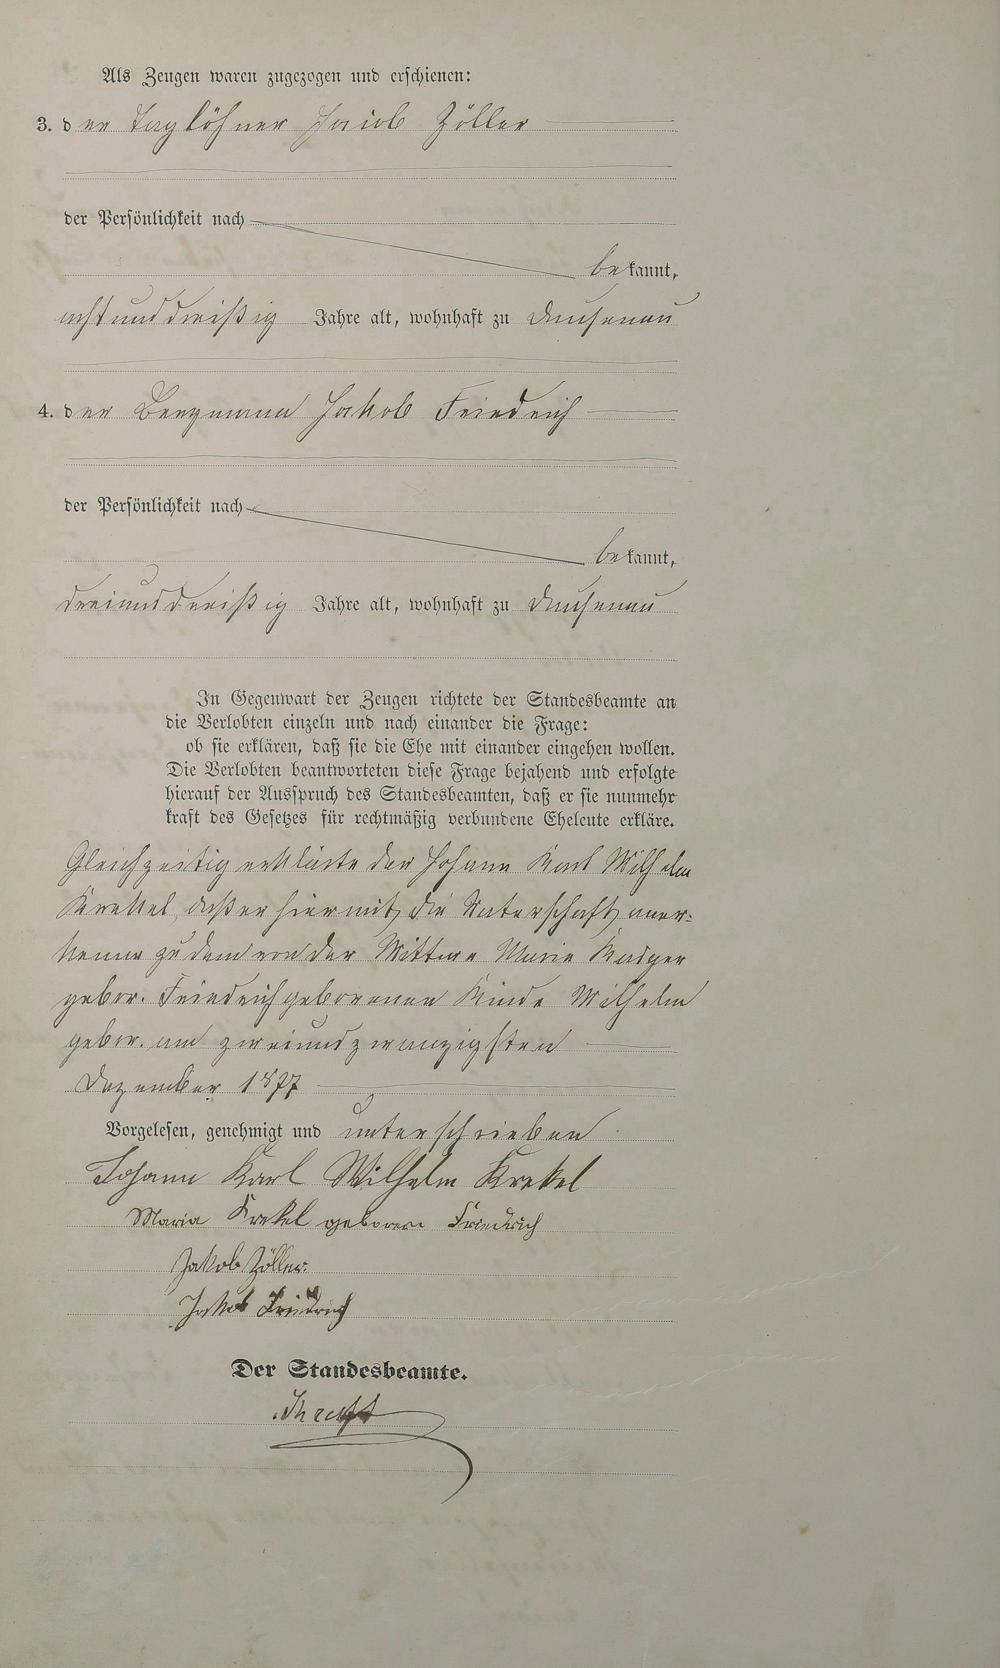 Als Zeugen waren zugezogen und erschienen:
3. der Taglöhner Jacob Zöller
der Persönlichkeit nach
bekannt,
achtunddreißig Jahre alt, wohnhaft zu Dausenau
4. der Bergmann Jakob Friedrich
der Persönlichkeit nach
bekannt,
dreiunddreißig Jahre alt, wohnhaft zu Dausenau
In Gegenwart der Zeugen richtete der Standesbeamte an
die Verlobten einzeln und nach einander die Frage:
ob sie erklären, daß sie die Ehe mit einander eingehen wollen.
Die Verlobten beantworteten diese Frage bejahend und erfolgte
hierauf der Ausspruch des Standesbeamten, daß er sie nunmehr
kraft des Gesetzes für rechtmäßig verbundene Eheleute erkläre.
Gleichzeitig erklärte der Johann Karl Wilhelm
Krekel, daß er hiermit die Vaterschaft aner-
kenne zu dem von der Wittwe Marie
gebor. Friedrich geborenen Kinde Wilhelm
gebor. am zweiundzwanzigsten
Dezember 1877
Vorgelesen, genehmigt und unterschrieben
Johann Karl Wilhelm Krekel
Maria Krekel geborene Friedrich
Jakob Zöller
Jakob Friedrich
Der Standesbeamte.